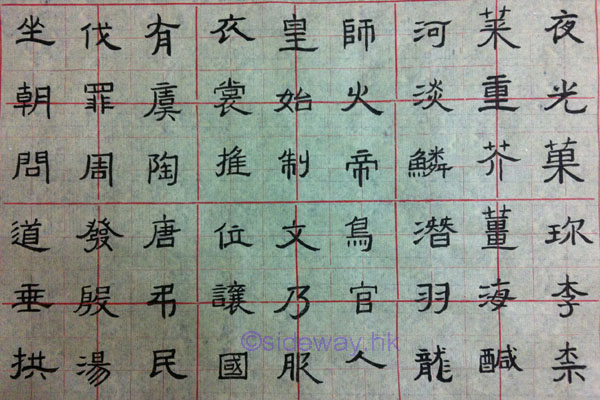 夜光菓珎李柰
菜重芥薑海醎
河淡鱗潛羽龍
師火帝鳥官人
皇始制文乃服
衣裳推位讓國
有虞陶唐弔民
伐罪周發殷湯
坐朝問道垂拱
©sideway.hk